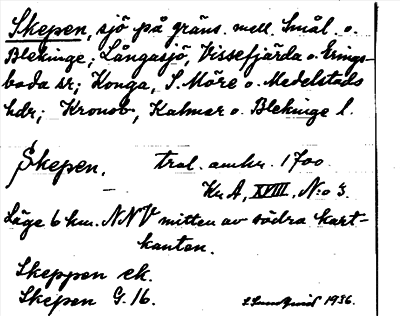 Skepen, sjö på gräns. mell. Smål. o.
Blekinge; Långasjö, Vissefjärda o. Erings-
boda sr; Konga, S. Möre o. Medelstads
hdr; Kronob., Kalmar o. Blekinge l.
Skepen. trol. omkr. 1700.
Kr A, XVIII, N:o 3.
Läge 6 km. NNV mitten av södra kart-
kanten.
Skeppen ek.
Skepen G. 16.
1936.